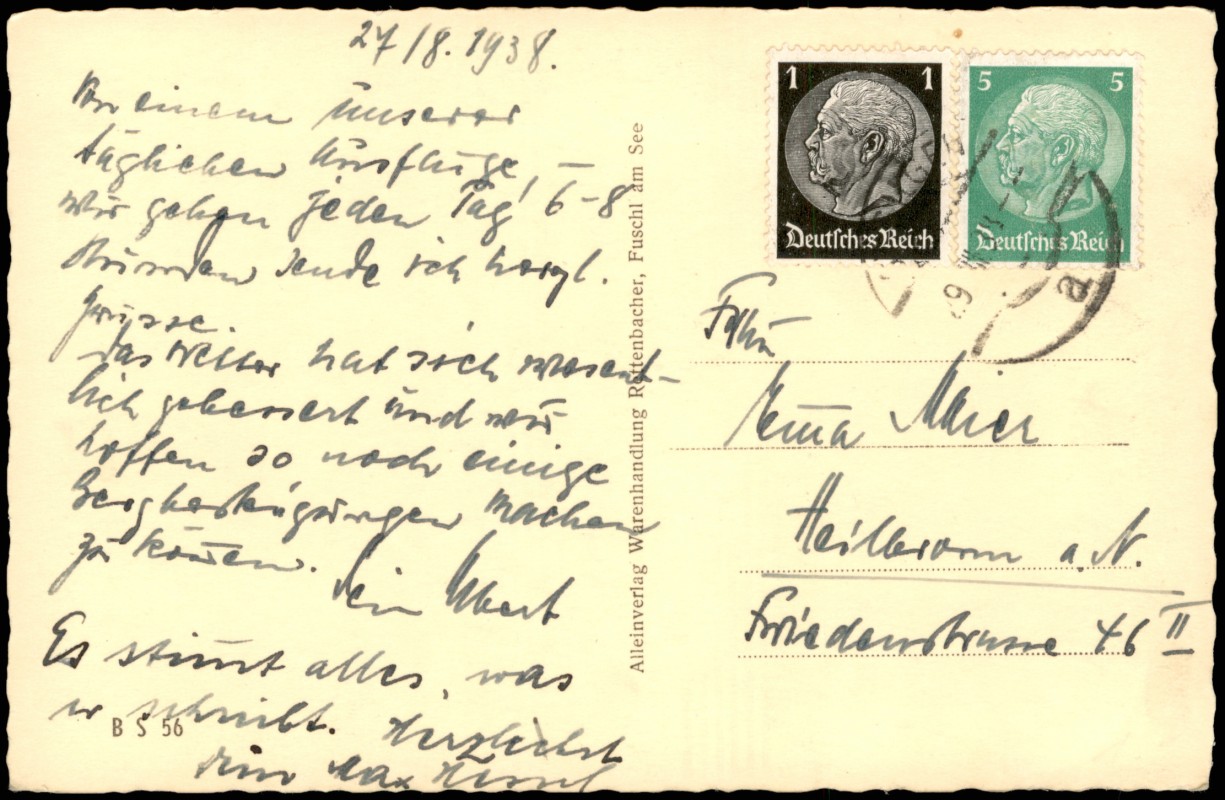 27/8.1938.
Von einem unserer
täglichen Ausflüge, –
wir gehen jeden Tag 6–8
Stunden sende ich herzl.
Grüsse.
Das Wetter hat sich wesent-
lich gebessert und wir
hoffen so noch einige
Bergbesteigungen machen
zu können.
Dein Albert
Es stimmt alles, was
er schreibt. Herzlichst
Dein Max
B S 56
Alleinverlag Warenhandlung Rottenbacher, Fuschl am See
1 1
Deutsches Reich
5 5
Deutsches Reich
a
Emma Maier
Heilbronn a. N.
Friedenstrasse 46 II